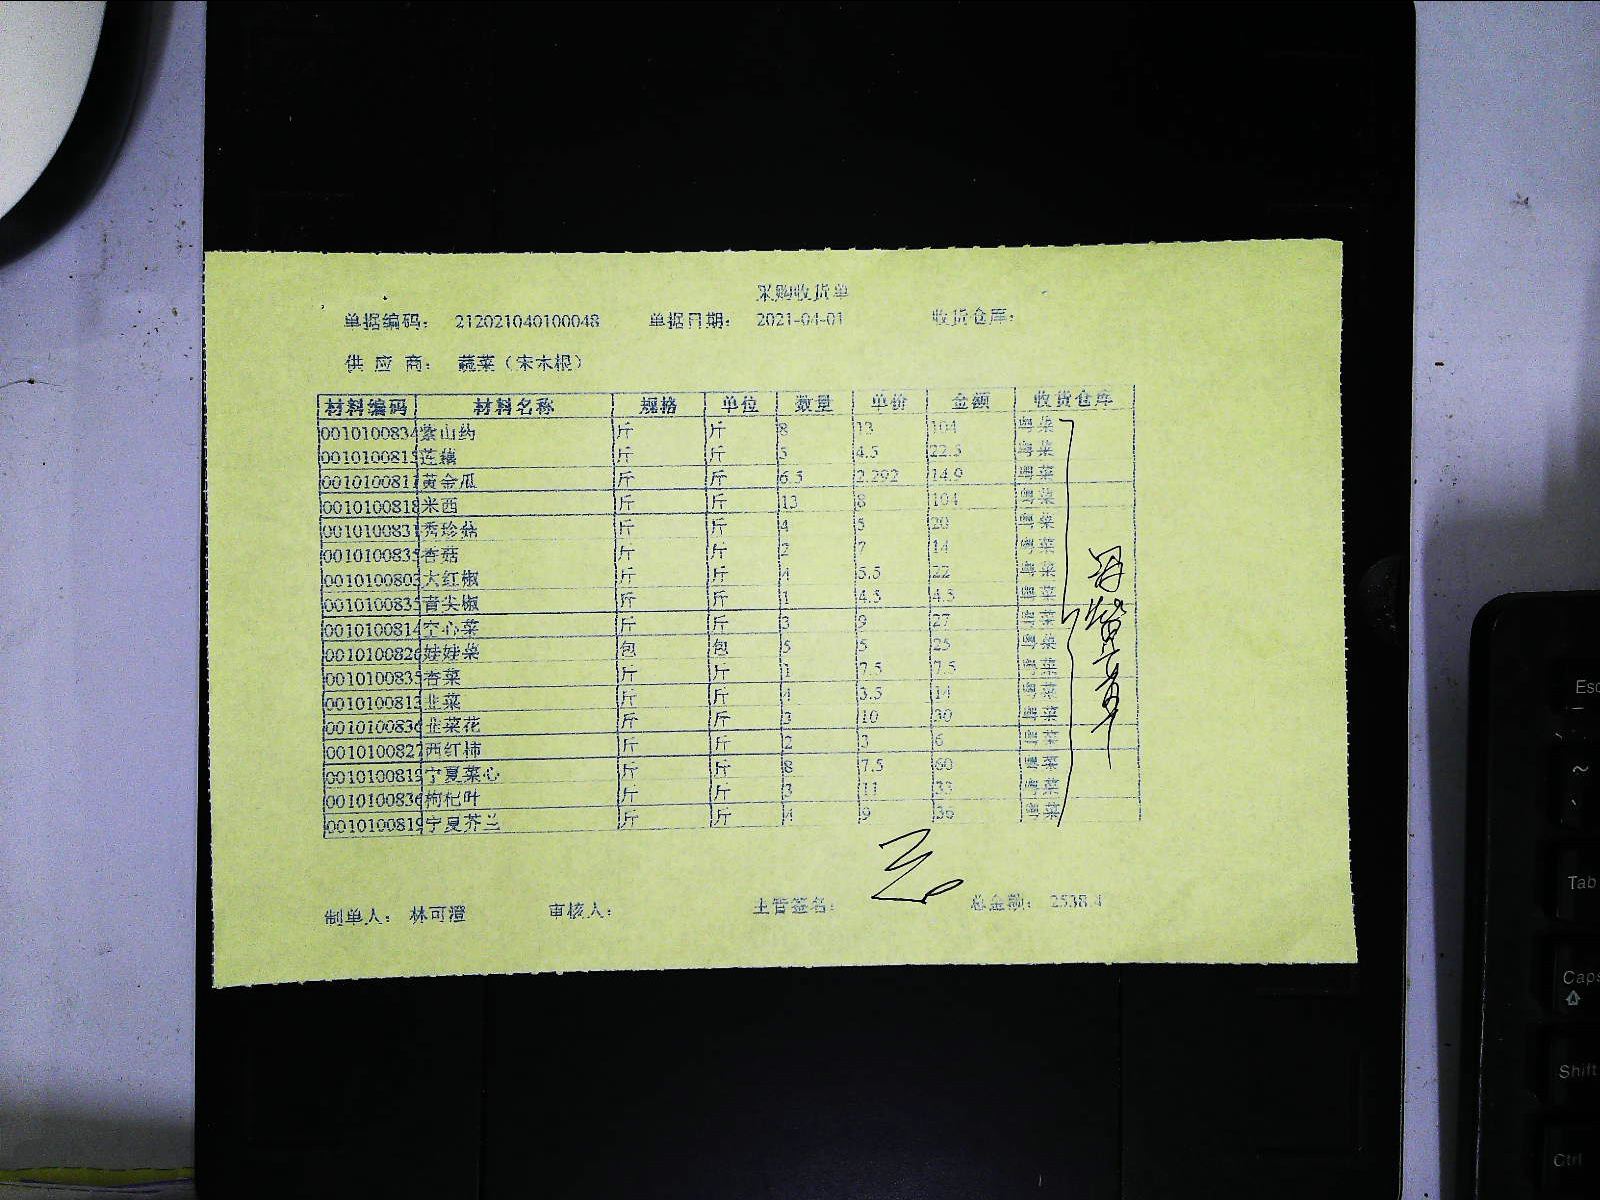 采购收货单
单据编码： 212021040100048 单据日期： 2021-04-01 收货仓库：
供 应 商： 蔬菜（宋木根）
材料编码 材料名称 规格 单位 数量 单价 金额 收货仓库
0010100834 紫山药 斤 斤 8 13 104 粤菜
0010100815 莲藕 斤 斤 5 4.5 22.5 粤菜
0010100811 黄金瓜 斤 斤 6.5 2.292 14.9 粤菜
0010100818 米西 斤 斤 13 8 104 粤菜
0010100831 秀珍菇 斤 斤 4 5 20 粤菜
0010100835 香菇 斤 斤 2 7 14 粤菜
0010100803 大红椒 斤 斤 4 5.5 22 粤菜
0010100835 青尖椒 斤 斤 1 4.5 4.5 粤菜
0010100814 空心菜 斤 斤 3 9 27 粤菜
0010100826 娃娃菜 包 包 5 5 25 粤菜
0010100835 香菜 斤 斤 1 7.5 7.5 粤菜
0010100813 韭菜 斤 斤 4 3.5 14 粤菜
0010100836 韭菜花 斤 斤 3 10 30 粤菜
0010100827 西红柿 斤 斤 2 3 6 粤菜
0010100819 宁夏菜心 斤 斤 8 7.5 60 粤菜
0010100836 枸杞叶 斤 斤 3 11 33 粤菜
0010100819 宁夏芥兰 斤 斤 4 9 36 粤菜
制单人： 林可澄 审核人： 主管签名： 总金额： 2538.4
Esc
~
Tab
Caps
Shift
Ctrl